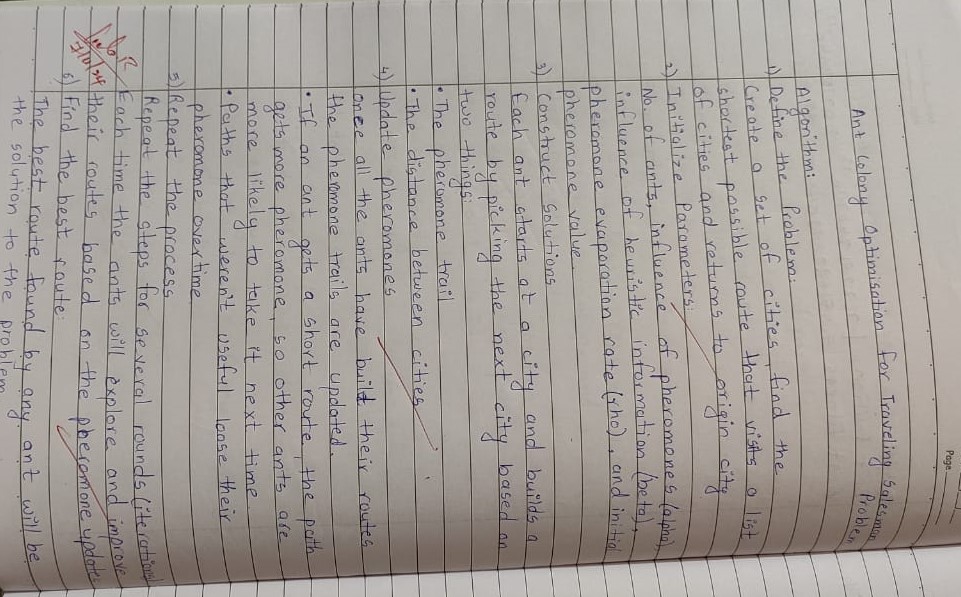 Page
Ant Colony Optimisation for Traveling Salesman
Problem
Algorithm:
1) Define the Problem:
Create a set of cities, find the
shortest possible route that visits a list
of cities and returns to origin city
2) Initialize Parameters:
No. of ants, influence of pheromones (alpha),
influence of heuristic information (beta),
pheromone evaporation rate (rho), and initial
pheromone value.
3) Construct Solutions
Each ant starts at a city and builds a
route by picking the next city based on
two things:
• The pheromone trail
• The distance between cities
4) Update pheromones
Once all the ants have built their routes
the phermone trails are updated.
• If an ant gets a short route, the path
gets more pheromone, so other ants are
more likely to take it next time
• Paths that weren't useful loose their
pheromone overtime
5) Repeat the process
Repeat the steps for several rounds (iterations)
Each time the ants will explore and improve
their routes based on the pheromone updates
6) Find the best route:
The best route found by any ant will be
the solution to the problem